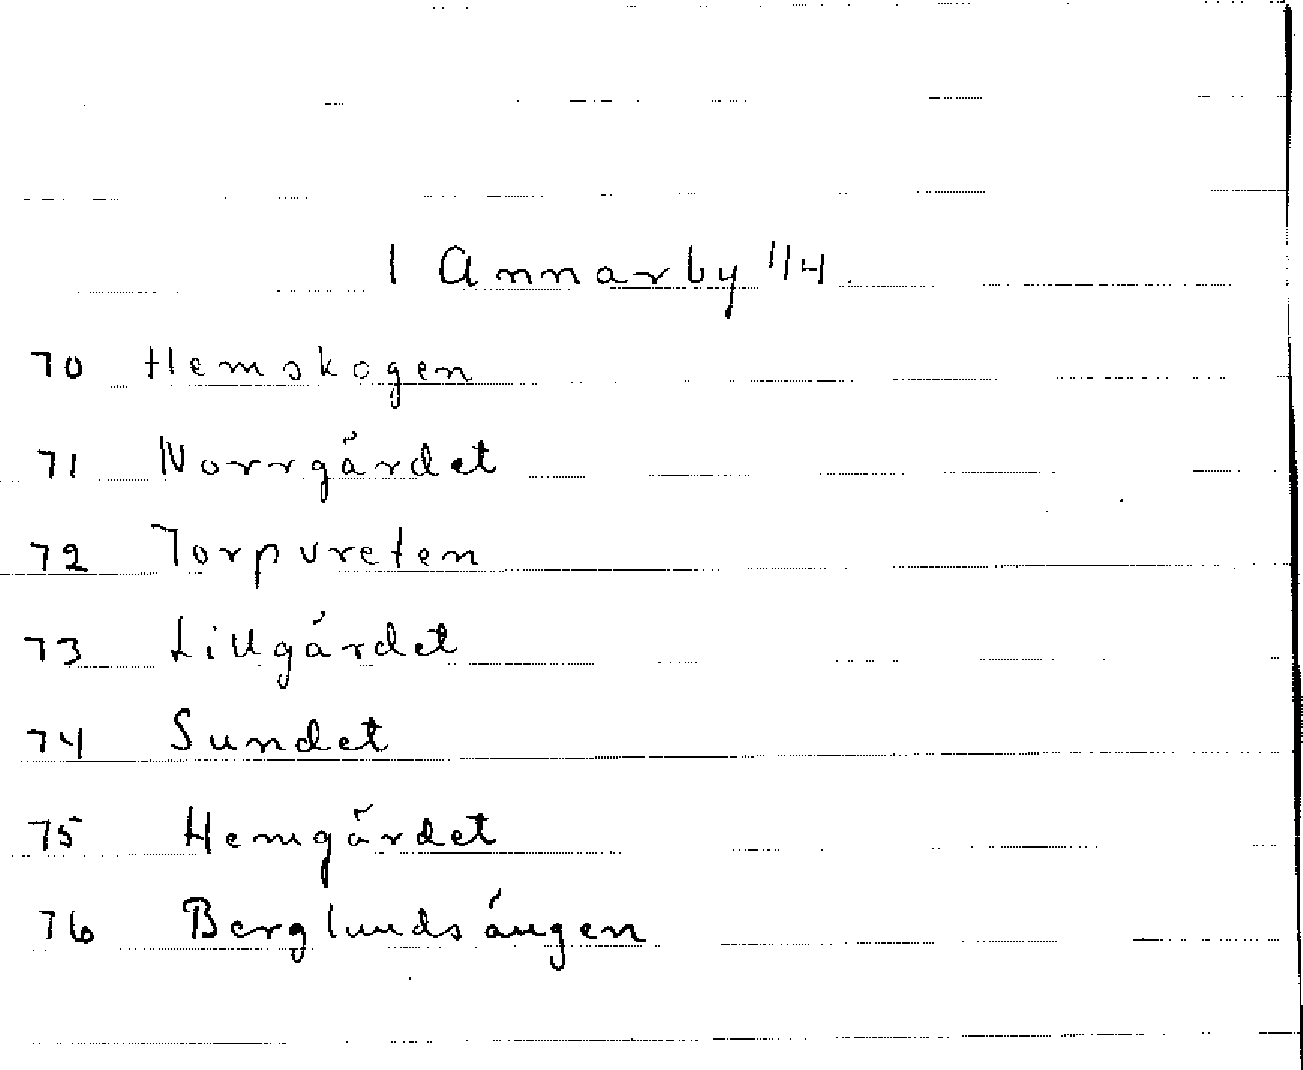 1 Annarby 1/4.
70 Hemskogen
71 Norrgärdet
72 Torpvreten
73 Lillgärdet
74 Sundet
75 Hemgärdet
76 Berglundsängen